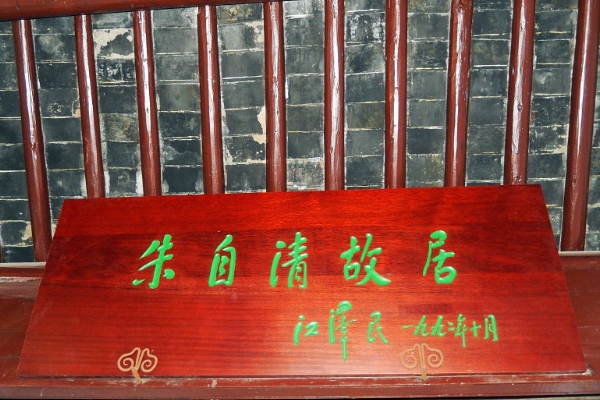 朱自清故居
江泽民 一九九二年十月